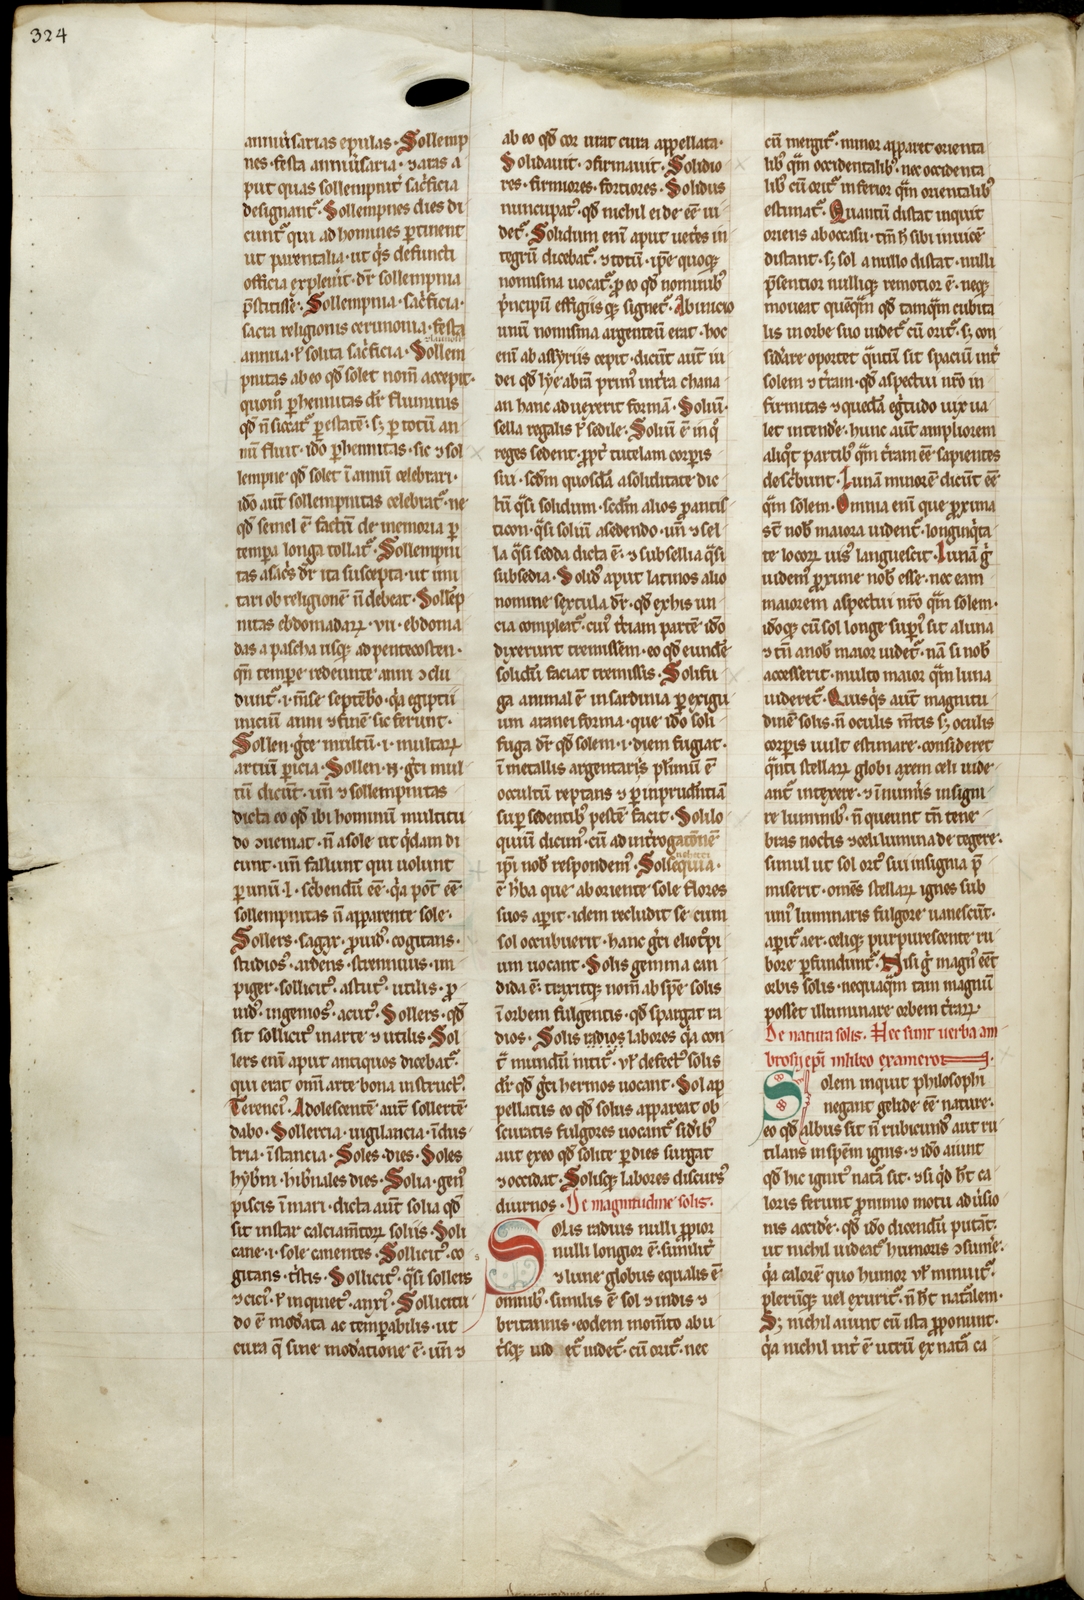 324
anniu̾sarias epulas · Sollemp
nes · festa anniu̾saria · ⁊ aras a
put quas sollempnit̾ sac̾ficia
designant᷑ · Sollempnes dies di
cunt᷑ qui ad homines ꝑtinent
ut parentalia · ut q̾s defuncti
officia expleu̾it · dr̄ sollempnia
p̄stitisse · Sollempnia · sac̾ficia ·
sacra religionis cerimonia · festa
annua · ł solita sac̾ficia · Sollem
pnitas ab eo qđ solet nom̄ accepit ·
quom̊ ꝑhennitas dr̄ fluminis
qđ n̄ siccat᷑ ꝑ estatē · sꝫ ꝑ totū an
nū fluit · ido ꝑhennitas · sic ⁊ sol
lempne qđ solet ī annū celebrari ·
ido aut̄ sollempnitas celebrat᷑ · ne
qđ semel ē factū de memoria ꝑ
tempa longa tollat᷑ · Sollempni
tas a sac̾s dr̄ ita suscepta · ut mi
tari ob religionē n̄ debeat · Sollēp
nitas ebdomadaꝝ · vii · ebdoma
das a pascha usqꝫ ad pentecosten ·
qn̄ tempe redeunte anni ꝯclu
dunt᷑ · i · m̄se septēb̾o · q̾a egiptii
inicium anni ⁊ finē sic ferunt ·
Sollen · g̾ce multū · i · multaꝝ
artiū ꝑicia · Sollen · N · g̾ci mul
tū dicūt · un̄ ⁊ sollempnitas
dicta eo qđ ibi hominū multitu
do ꝯueniat · n̄ a sole ut q̾dam di
cunt · un̄ fallunt qui uolunt
ꝑ unū · l · sc̾bendū eē · q̾a pōt eē
sollempnitas n̄ apparente sole ·
Sollers · sagax · ꝓuidꝰ · cogitans ·
studiosꝰ · ardens · strenuus · im
piger · sollicitꝰ · astutꝰ · utilis · ꝓ
uidꝰ · ingeniosꝰ · acutꝰ · Sollers · qđ
sit sollicitꝰ in arte ⁊ utilis · Sol
lers eni aput antiquos dicebat᷑
qui erat om̄i arte bona instructꝰ ·
Terenciꝰ · Adolescentē aut̄ sollertē
dabo · Sollercia · uigilancia · īdus
tria · īstancia · Soles · dies · Soles
hyb̾ni · hib̾nales dies · Solia · genꝰ
piscis ī mari · dicta aut̄ solia qđ
sit instar calciam̄toꝝ soliis · Soli
cane · i · sole canentes · Sollicitꝰ · co
gitans · t̾stis · Sollicitꝰ · q̾si sollers
⁊ citꝰ · ł inquietꝰ · anxiꝰ · Sollicitu
do ē mod̾ata ac tempabilis · ut
cura q̄ sine mod̾atione ē · un̄ ⁊
ab eo qđ cor urat cura appellata ·
Solidauit · ꝯfirmauit · Solidio
res · firmiores · fortiores · Solidus
nuncupat᷑ · qđ nichil ei deēē ui
det᷑ · Solidum eni aput uet̾es in
tegrū dicebat᷑ · ⁊ totū · ip̄e quoqꝫ
nomisma uocat᷑ · ꝓ eo qđ nominibꝰ
p̾ncipū effigiisqꝫ signet᷑ · Ab inicio
unū nomisma argenteū erat · hoc
eni ab assyriis cepit · dicūt aut̄ iu
dei qđ hyeabrā primꝰ int̾ra chana
an hanc aduexerit formā · Soliū ·
sella regalis ł sedile · Soliū ē in qͦ
reges sedent · ꝓpt̾ tutelam corꝑis
sui · scdm̄ quosdā a soliditate dic
tū q̾si solidum · scdm̄ alios ꝑ antis
ticon · q̾si soliū a sedendo · un̄ ⁊ sel
la q̾si sedda dicta ē · ⁊ subsellia q̾si
subsedia · Solidꝰ aput latinos alio
nomine sextula dr̄ · qđ ex his un
cia compleat᷑ · cuiꝰ t̾ciam partē ido
dixerunt tremissem · eo qđ eiundē
solidū faciat tremissis · Solifu
ga animal ē in sardinia ꝑexigu
um aranei forma · que ido soli
fuga dr̄ qđ solem · i · diem fugiat ·
ī metallis argentariis plimū ē
occultū reptans ⁊ ꝑ inprud̄tiā
suꝑ sedentibꝰ pestē facit · Solilo
quiū dicimꝰ · cū ad int̾rogatōnē
ip̄i nob̾ respondemꝰ · Solsequia ·
ē h̾ba que ab oriente sole flores
suos aꝑit · idem recludit se cum
sol occubuerit · hanc g̾ci eliot̾pi
um uocant · Solis gemma can
dida ē · traxitqꝫ nom̄ ab spē solis
ī orbem fulgentis · qđ spargat ra
dios · Solis radios labores q̾a con
t̾ mundū intit᷑ · ul̾ defectꝰ solis
dr̄ qđ g̾ci hermos uocant · Sol ap
pellatus eo qđ solus appareat ob
scuratis fulgores uocant᷑ sid̾ibꝰ
aut exeo qđ solite ꝑ dies surgat
⁊ occidat · Solisqꝫ labores discursꝰ
diurnos · De magnitudine solis ·
Solis radius nulli ꝓpior
nulli longior ē · similit̾
⁊ lune globus equalis ē
omnibꝰ · similis ē sol ⁊ indis ⁊
britannis · eodem mom̄to abu
t̾sqꝫ uid et᷑ uidet᷑ · cū orit᷑ · nec
cū mergit᷑ · minor apparet orienta
libꝰ qm̄ occidentalibꝰ · nec occidenta
libꝰ cū orit᷑ inferior qm̄ orientalibꝰ
estimat᷑ · Quantū distat inquit
oriens ab occasu · tm̄ h̾ sibi inuicē
distant · sꝫ sol a nullo distat · nulli
p̄sentior nulliqꝫ remotior ē · neqꝫ
moueat quēqm̄ qđ tamqm̄ cubita
lis in orbe suo uidet᷑ cū orit᷑ · sꝫ con
sid̾are oportet q̾ntū sit spaciū int̾
solem ⁊ t̾ram · qđ aspectui nr̄o in
firmitas ⁊ quedā eg̾tudo uix ua
let intend̾e · hunc aut̄ ampliorem
aliq̊t partibꝰ qm̄ t̾ram eē sapientes
desc̾bunt · Lunā minorē dicūt eē
qm̄ solem · Omnia eni que proxima
st̄ nob̾ maiora uident᷑ · longinq̾ta
te locoꝝ uisꝰ languescit · Lunā g̾
uidemꝰ proxime nob̾ esse · nec eam
maiorem aspectui nr̄o qm̄ solem ·
idoqꝫ cū sol longe suꝑiꝰ sit a luna
⁊ tn̄ a nob̾ maior uidet᷑ · nā si nob̾
accesserit · multo maior qm̄ luna
uideret᷑ · Quisq̾s aut̄ magnitu
dinē solis · n̄ oculis m̄tis sꝫ oculis
corꝑis uult estimare · consideret
q̾nti stellaꝝ globi axem celi uide
ant᷑ intexere · ⁊ īnum̾is insigni
re luminibꝰ · n̄ queunt tn̄ tene
bras noctis ⁊ celi lumina detegere ·
simul ut sol ortꝰ sui insignia p̄
miserit · omēs stellaꝝ ignes sub
uniꝰ luminaris fulgore uanescūt ·
aꝑit᷑ aer · celiqꝫ purpurescente ru
bore ꝑfundunt᷑ · Nisi g̾ magnꝰ eēt
orbis solis · nequaqm̄ tam magnū
posset illuminare orbem t̾raꝝ
De natura solis · Hec sunt uerba am
brosii epī in libro exameron ·
Solem inquit philosophi
negant gelide eē nature ·
eo qđ albus sit n̄ rubicundꝰ aut ru
tilans in spēm ignis · ⁊ ido aiunt
qđ hic ignitꝰ natā sit · ⁊ si qͥd h̄t ca
loris ferunt ꝓ nimio motu ad u̾sio
nis accid̾e · qđ ido dicendū putāt ·
ut nichil uideat᷑ humoris ꝯsum̾e ·
q̾a calorē quo humor ul̾ minuit᷑
plerūqꝫ uel exurit᷑ · n̄ h̄t nat̄alem ·
Sꝫ nichil aiunt cū ista ꝓponunt ·
q̾a nichil int̾ ē utrū ex natā ca